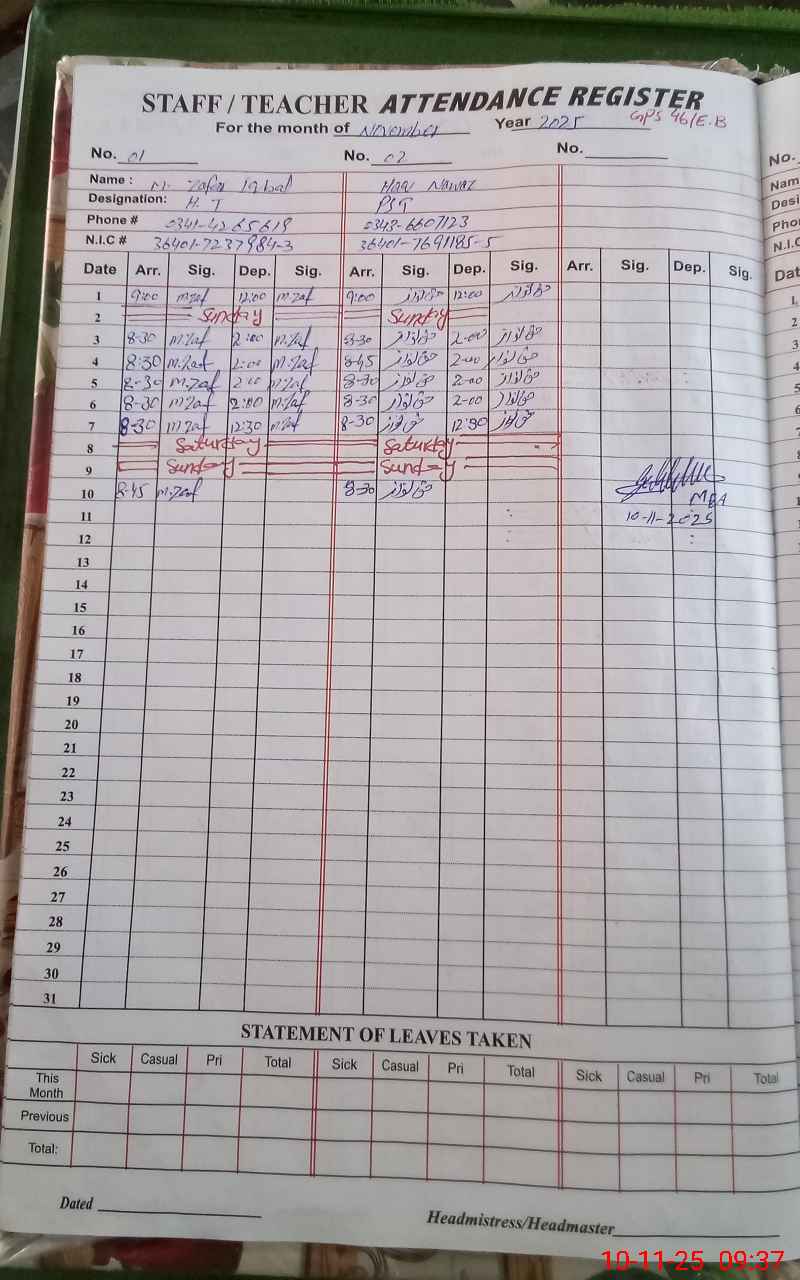 STAFF / TEACHER ATTENDANCE REGISTER
GPS 46/E.B
For the month of November Year 2025
No. 01 No. 02 No.
Name : M. Zafar Iqbal Haq Nawaz
Designation: H.T PST
Phone # 0341-4265619 0343-6607123
N.I.C # 36401-7237984-3 36401-7691185-5
Date Arr. Sig. Dep. Sig. Arr. Sig. Dep. Sig. Arr. Sig. Dep. Sig.
1 9:00 m.zaf 12:00 m.zaf 9:00 حق نواز 12:00 حق نواز
2 Sunday Sunday
3 8-30 m.zaf 2:00 m.zaf 8-30 حق نواز 2-00 حق نواز
4 8:30 m.zaf 2:00 m.zaf 8-45 حق نواز 2-00 حق نواز
5 8-30 m.zaf 2:00 m.zaf 8-30 حق نواز 2-00 حق نواز
6 8-30 m.zaf 2:00 m.zaf 8-30 حق نواز 2-00 حق نواز
7 8-30 m.zaf 12:30 m.zaf 8-30 حق نواز 12:30 حق نواز
8 Saturday Saturday
9 Sunday Sunday
10 8-45 m.zaf 8-30 حق نواز MEA
11 10-11-2025
12
13
14
15
16
17
18
19
20
21
22
23
24
25
26
27
28
29
30
31
STATEMENT OF LEAVES TAKEN
Sick Casual Pri Total Sick Casual Pri Total Sick Casual Pri Total
This Month
Previous
Total:
Dated
Headmistress/Headmaster
10-11-25 09:37